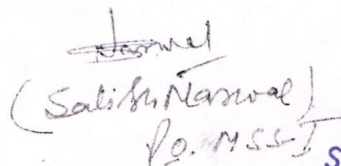 Narwal
(Satish Narwal)
P.O. MSS-I
S